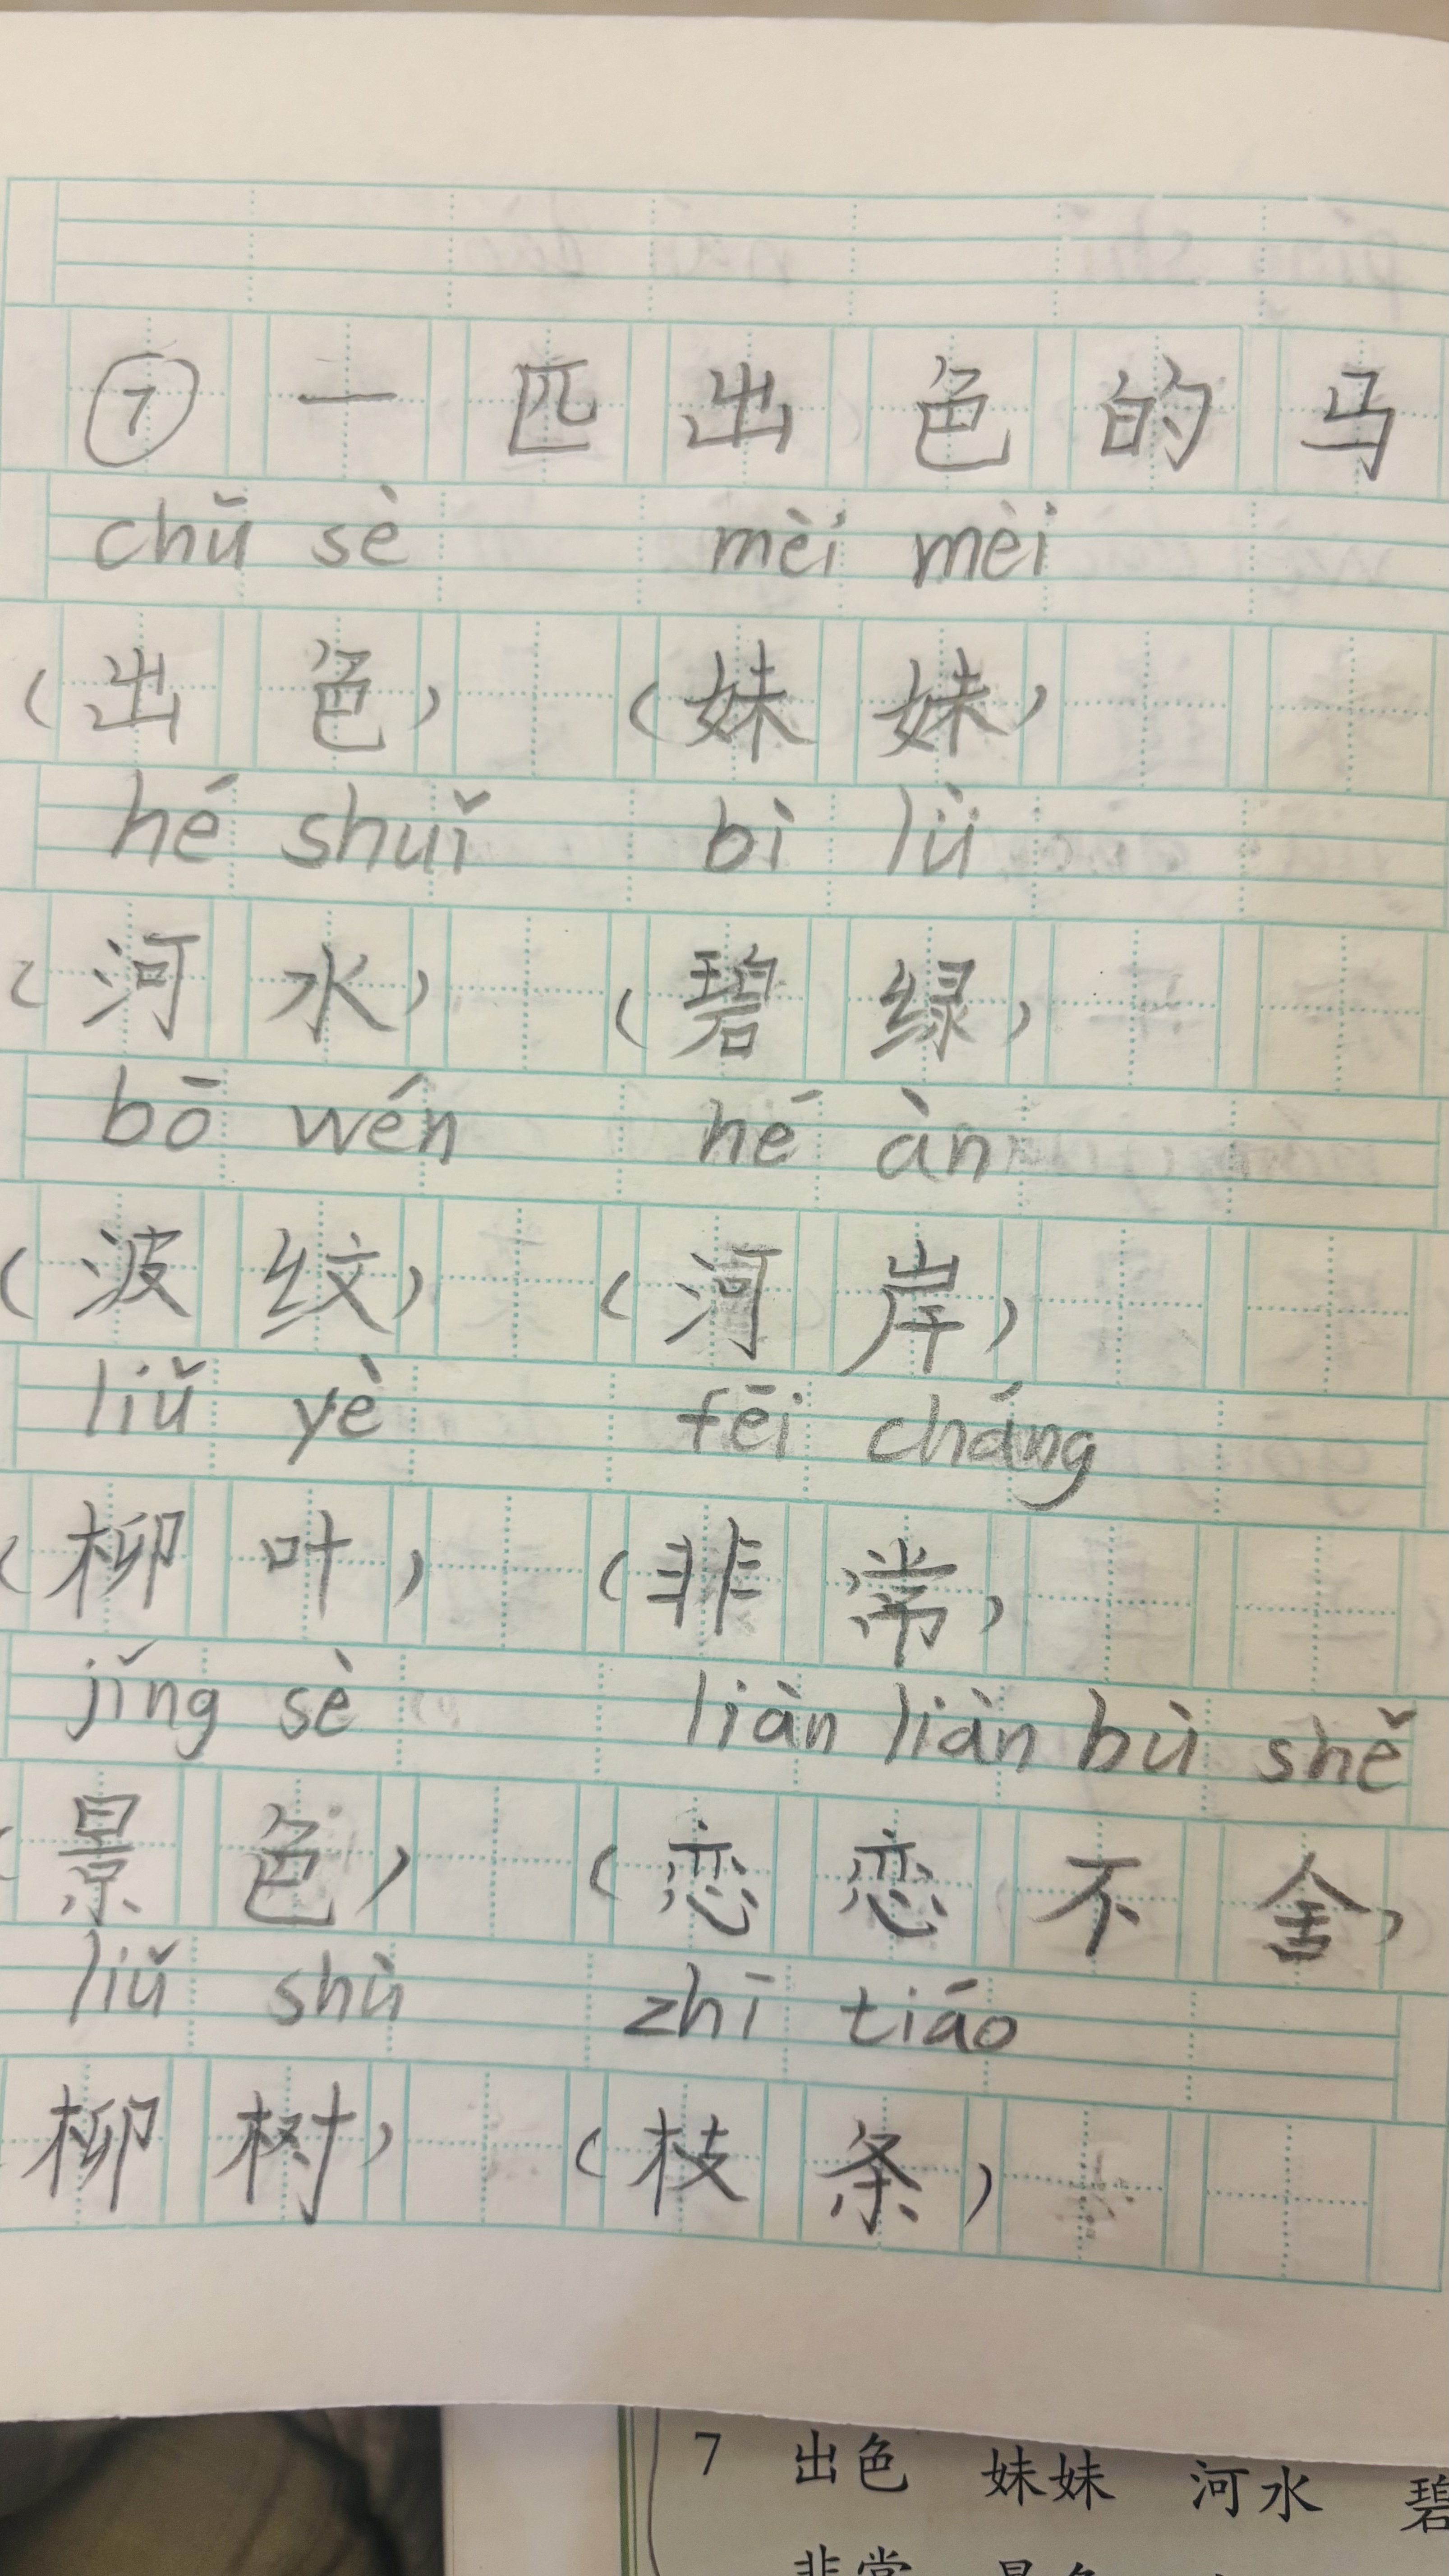 ⑦ 一 匹 出 色 的 马
chū sè mèi mèi
(出 色) (妹 妹)
hé shuǐ bì lǜ
(河 水) (碧 绿)
bō wén hé àn
(波 纹) (河 岸)
liǔ yè fēi cháng
(柳 叶) (非 常)
jǐng sè liàn liàn bù shě
(景 色) (恋 恋 不 舍)
liǔ shù zhī tiáo
柳 树) (枝 条)
7 出色 妹妹 河水 碧
非常 景色